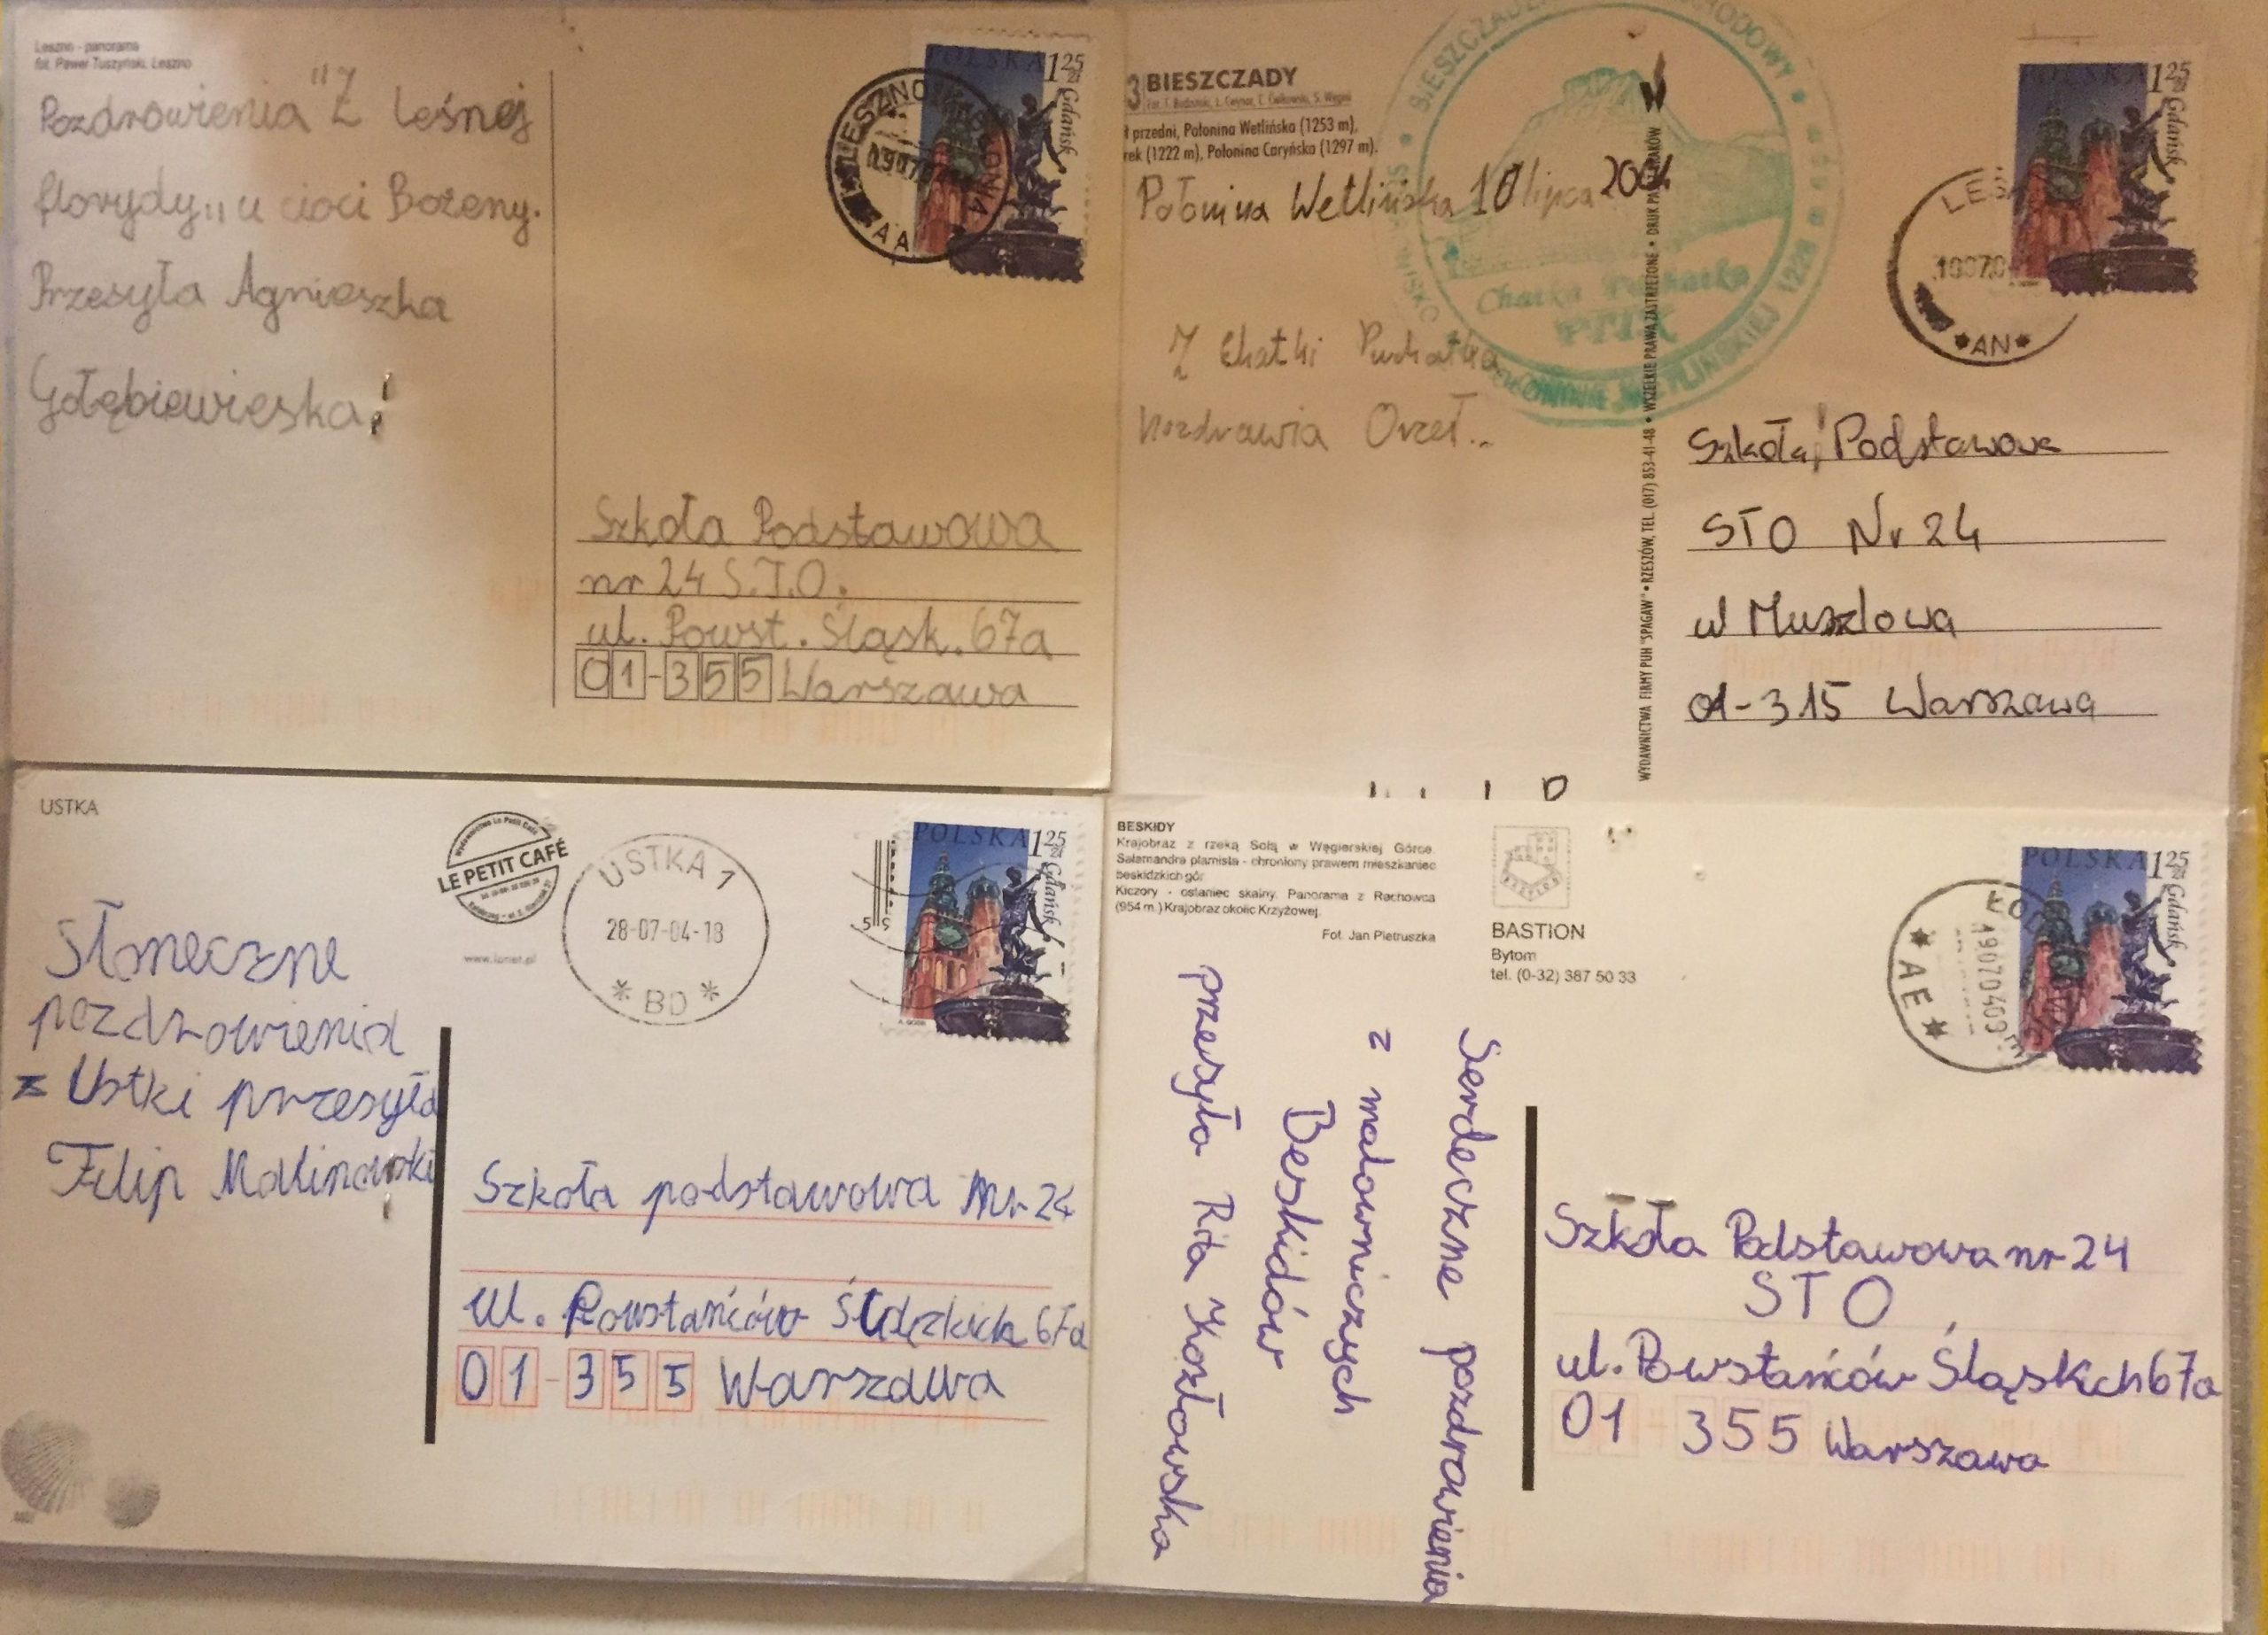 Leszno - panorama
fot. Paweł Tuszyński, Leszno
Pozdrowienia "Z Leśnej
florydy,, u cioci Bożeny.
Przesyła Agnieszka
Gołębiewieska
POLSKA 1 25 zł
Gdańsk
LESZNO
AA
Szkoła Podstawowa
nr 24 S.T.O.
ul. Powst. Śląsk. 67a
01-355 Warszawa
3 BIESZCZADY
ł przedni, Połonina Wetlińska (1253 m),
rek (1222 m), Połonina Caryńska (1297 m).
Połonina Wetlińska 10 lipca 2004
Z Chatki Puchatka
pozdrawia Orzeł..
Chatka Puchatka
PTTK
WYDAWNICTWA FIRMY PUH "SPAGAW" • RZESZÓW, TEL. (017) 853-41-48 • WSZELKIE PRAWA ZASTRZEŻONE • DRUK
POLSKA 1 25 zł
Gdańsk
*AN*
Szkoła Podstawowa
STO Nr 24
ul Muszlowa
01-315 Warszawa
USTKA
LE PETIT CAFÉ
USTKA 1
28-07-04-18
* BD *
POLSKA 1 25 zł
Gdańsk
Słoneczne
pozdrowienia
z Ustki przesyła
Filip Malinowski
Szkoła podstawowa Nr 24
ul. Powstańców Śląskich 67a
01-355 Warszawa
BESKIDY
Krajobraz z rzeką Sołą w Węgierskiej Górce.
Salamandra plamista - chroniony prawem mieszkaniec
beskidzkich gór
Kiczory - ostaniec skalny. Panorama z Rachowca
(954 m.) Krajobraz okolic Krzyżowej.
Fot. Jan Pietruszka
BASTION
Bytom
tel. (0-32) 387 50 33
POLSKA 1 25 zł
Gdańsk
* AE *
19070409
Serdeczne pozdrowienia
z malowniczych
Beskidów
przesyła Rita Kozłowska
Szkoła Podstawowa nr 24
STO
ul. Powstańców Śląskich 67a
01 355 Warszawa